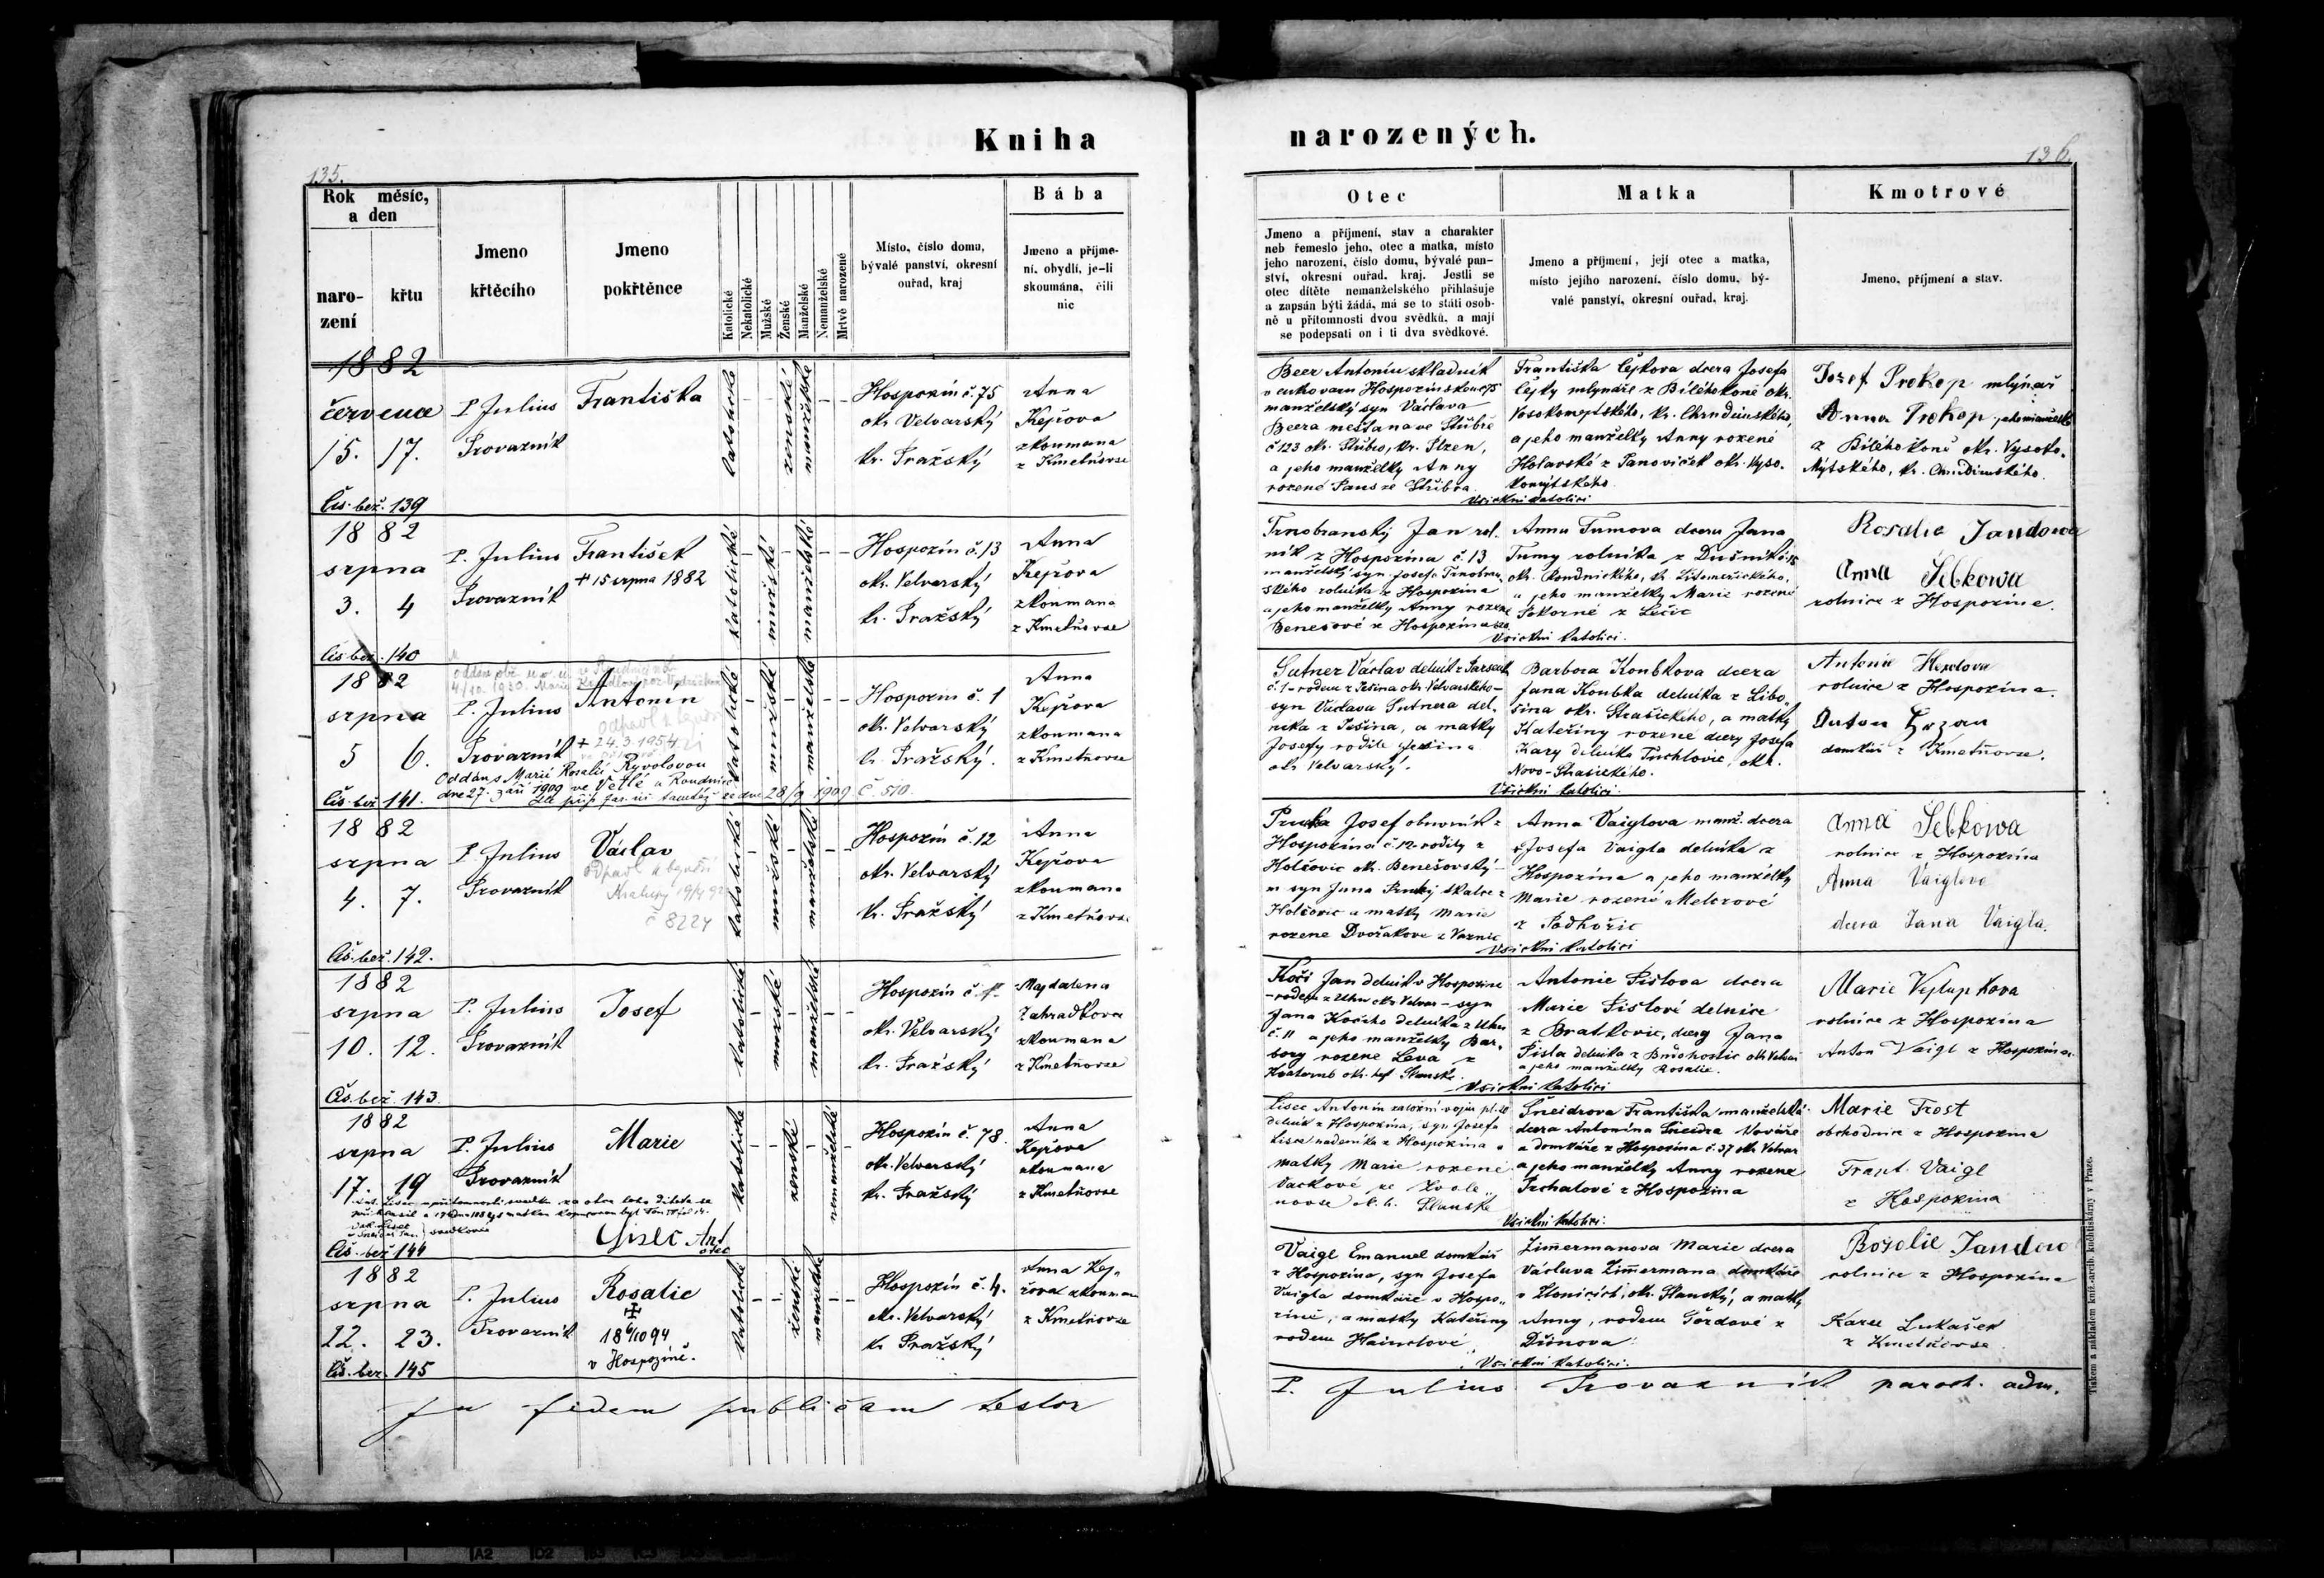 Kniha
135.
Rok měsíc,
a den
naro-
zení
křtu
Jmeno
křtěcího
Jmeno
pokřtěnce
Katolické
Nekatolické
Mužské
Ženské
Manželské
Nemanželské
Mrtvě narozené
Místo, číslo domu,
bývalé panství, okresní
ouřad, kraj
Bába
Jmeno a příjme-
ní, obydlí, je-li
skoumána, čili
nic
1882
července
15. 17.
Čís. bež. 139
P. Julius
Provazník
Františka
katolické
ženské
manželské
Hospozín č. 75
okr. Velvarský
kr. Pražský
Anna
Kejřova
zkoumana
z Kmetňovse
1882
srpna
3. 4
Čís. bež. 140
P. Julius
Provazník
František
† 15 srpna 1882
katolické
mužské
manželské
Hospozín č. 13
okr. Velvarský
kr. Pražský
Anna
Kejřova
zkoumana
z Kmetňovse
1882
srpna
5 6.
Čís. bež. 141.
4/10. 1930. Marií
P. Julius
Provazník
Antonín
† 24.3.1954
Oddán s Marií Rosalií Ryvolovou
dne 27. září 1909 ve Vetlé u Roudnice
dle příp. far. úř. tamtéž ze dne 28/9 1909 č. 510.
katolické
mužské
manželské
Hospozín č. 1
okr. Velvarský
kr. Pražský.
Anna
Kejřova
zkoumana
z Kmetňovse
1882
srpna
4. 7.
Čís. bež. 142.
P. Julius
Provazník
Václav
č 8224
katolické
mužské
manželské
Hospozín č. 12
okr. Velvarský
kr. Pražský
Anna
Kejřova
zkoumana
z Kmetňovse
1882
srpna
10. 12.
Čís. bež. 143.
P. Julius
Provazník
Josef
katolické
mužské
manželské
Hospozín č.
okr. Velvarský
kr. Pražský
Magdalena
Zahradkova
zkoumana
z Kmetňovse
1882
srpna
17. 19
Čís. bež. 144
P. Julius
Provazník
Marie
svědkové
Lisec Ant
otec
katolické
ženské
nemanželské
Hospozín č. 78.
okr. Velvarský
kr. Pražský
Anna
Kejřova
zkoumana
z Kmetňovse
1882
srpna
22. 23.
Čís. bez. 145
P. Julius
Provazník
Rosalie
✠
18 6/10 94
v Hospozíně.
katolické
ženské
manželské
Hospozín č. 4.
okr. Velvarský
kr Pražský
Anna Kej„
řova zkouman
z Kmetňovse
In fidem publicam testor
narozených.
136.
Otec
Jmeno a příjmení, stav a charakter
neb řemeslo jeho, otec a matka, místo
jeho narození, číslo domu, bývalé pan-
ství, okresní ouřad, kraj. Jestli se
otec dítěte nemanželského přihlašuje
a zapsán býti žádá, má se to státi osob-
ně u přítomnosti dvou svědků, a mají
se podepsati on i ti dva svědkové.
Matka
Jmeno a příjmení, její otec a matka,
místo jejího narození, číslo domu, bý-
valé panství, okresní ouřad, kraj.
Kmotrové
Jmeno, příjmení a stav.
Beer Antonín skladník
v cukrovaru Hospozínském č 75
manželský syn Václava
Beera mešťana ve Stříbře
č 123 okr. Stříbro, kr. Plzen,
a jeho manželky Anny
rozené Pausze Stříbra.
Františka Čejkova dcera Josefa
Čejky mlynáře z Bíléhokoně okr.
Vosokomytského, kr. Chrudimského,
a jeho manželky Anny rozené
Holavské z Janoviček okr. Vyso-
komýtského.
Všickni katolíci
Josef Prokop mlýnář
Anna Prokop, jeho manželka
z Bílého koně okr. Vysoko-
Mýtského, kr. Chrudimského.
Trnobranský Jan rol.
ník z Hospozína č. 13
manželský syn Josefa Trnobran
ského rolníka z Hospozína
a jeho manželky Anny rozené
Benešové z Hospozína
Anna Tumova dcera Jana
Tumy rolníka z Dušník č. 15
okr. Roudnického, kr. Litoměřického,
a jeho manželky Marie rozené
Pokorné z Lečic
Všickni katolíci.
Rosalie Jandowa
Anna Šebkowa
rolnice z Hospozína.
Sutner Václav delník z
č. 1 - rodem z Ješína okr. Velvarského -
syn Václava Sutnera del.
níka z Ješína, a matky
Josefy rodilé Ješina
okr. Velvarský.
Barbora Koubkova dcera
Jana Koubka delníka z Libo„
šína okr. Strašického, a matky
Kateřiny rozené dcery Josefa
Kary delníka Tuchlovic, okr.
Novo-Strašického.
Všickni katolíci.
Antonie
rolnice z Hospozína.
Anton
domkář z Kmetňovse.
Josef obuvník z
Hospozína č. 12 - rodilý z
Holčovic okr. Benešovský -
Holčovic a matky Marie
rozené Dvořakove z Vaznic
Anna Vaiglova manž. dcera
Josefa Vaigla delníka z
Hospozína a jeho manželky
Marie rozené Melcrové
z Podhořic
Všickni katolíci
Anna Šebkowa
rolnice z Hospozína
Anna Vaiglova
dcera Jana Vaigla.
Kočí Jan delník v Hospozíně
- rodem z Uhu okr. Velvar - syn
Jana Kočího delníka z Uhu
č. 11 a jeho manželky Bar„
bory rozené Leva z
Antonie Píslova dcera
Marie Píslové delnice
z Bratkovic, dcery Jana
Písla delníka z okr. Velvar
a jeho manželky Rosalie.
Všickni katolíci
Marie Vejlupkova
rolnice z Hospozína
Anton Vaigl z Hospozína.
Lisec Antonín záložní vojín pl. 28
delník z Hospozína, syn Josefa
Lisce nadeníka z Hospozína a
matky Marie rozené
Vackové ze Zvole„
novse o. h. Slanské
Šneidrova Františka manželská
dcera Antonína Šneidra kováře
a domkáře z Hospozína č. 37 okr. Velvar
a jeho manželky Anny rozené
Prchalové z Hospozína
Všickni katolíci.
Marie Trost
obchodnice z Hospozína
Frant. Vaigl
z Hospozína
Vaigl Emanuel domkář
z Hospozína, syn Josefa
Vaigla domkáře v Hospo„
zíně, a matky Kateřiny
rodem Hainclové.
Zimmermanova Marie dcera
Václava Zimmermana domkáře
v Zlonicích, okr. Slanský, a matky
Anny, rodem Gerdové z
Dřínova.
Všickni katolíci.
Rozalie Jandow
rolnice z Hospozína
Karel Lukášek
z Kmetňovse.
P. Julius Provazník paroch. adm.
Tiskem a nákladem kníž.-arcib. knihtiskárny v Praze.